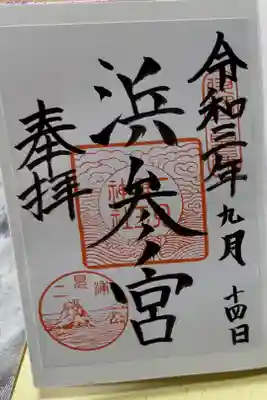 令和三年九月十四日
浜参宮
奉拝
神社
二見浦